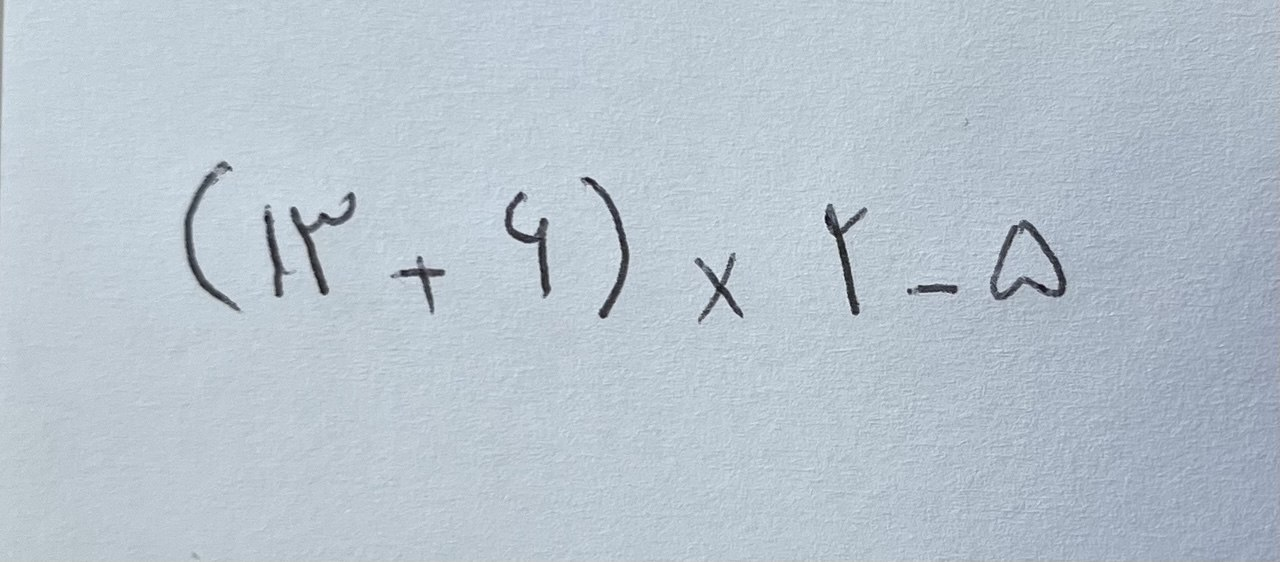 (۱۳ + ۶) × ۲ - ۵